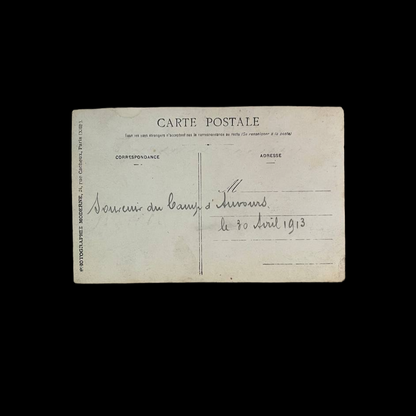 CARTE POSTALE
CORRESPONDANCE
ADRESSE
M
Souvenir du Camp d'Auvours.
le 30 Avril 1913
PHOTOGRAPHIE MODERNE, rue Paris